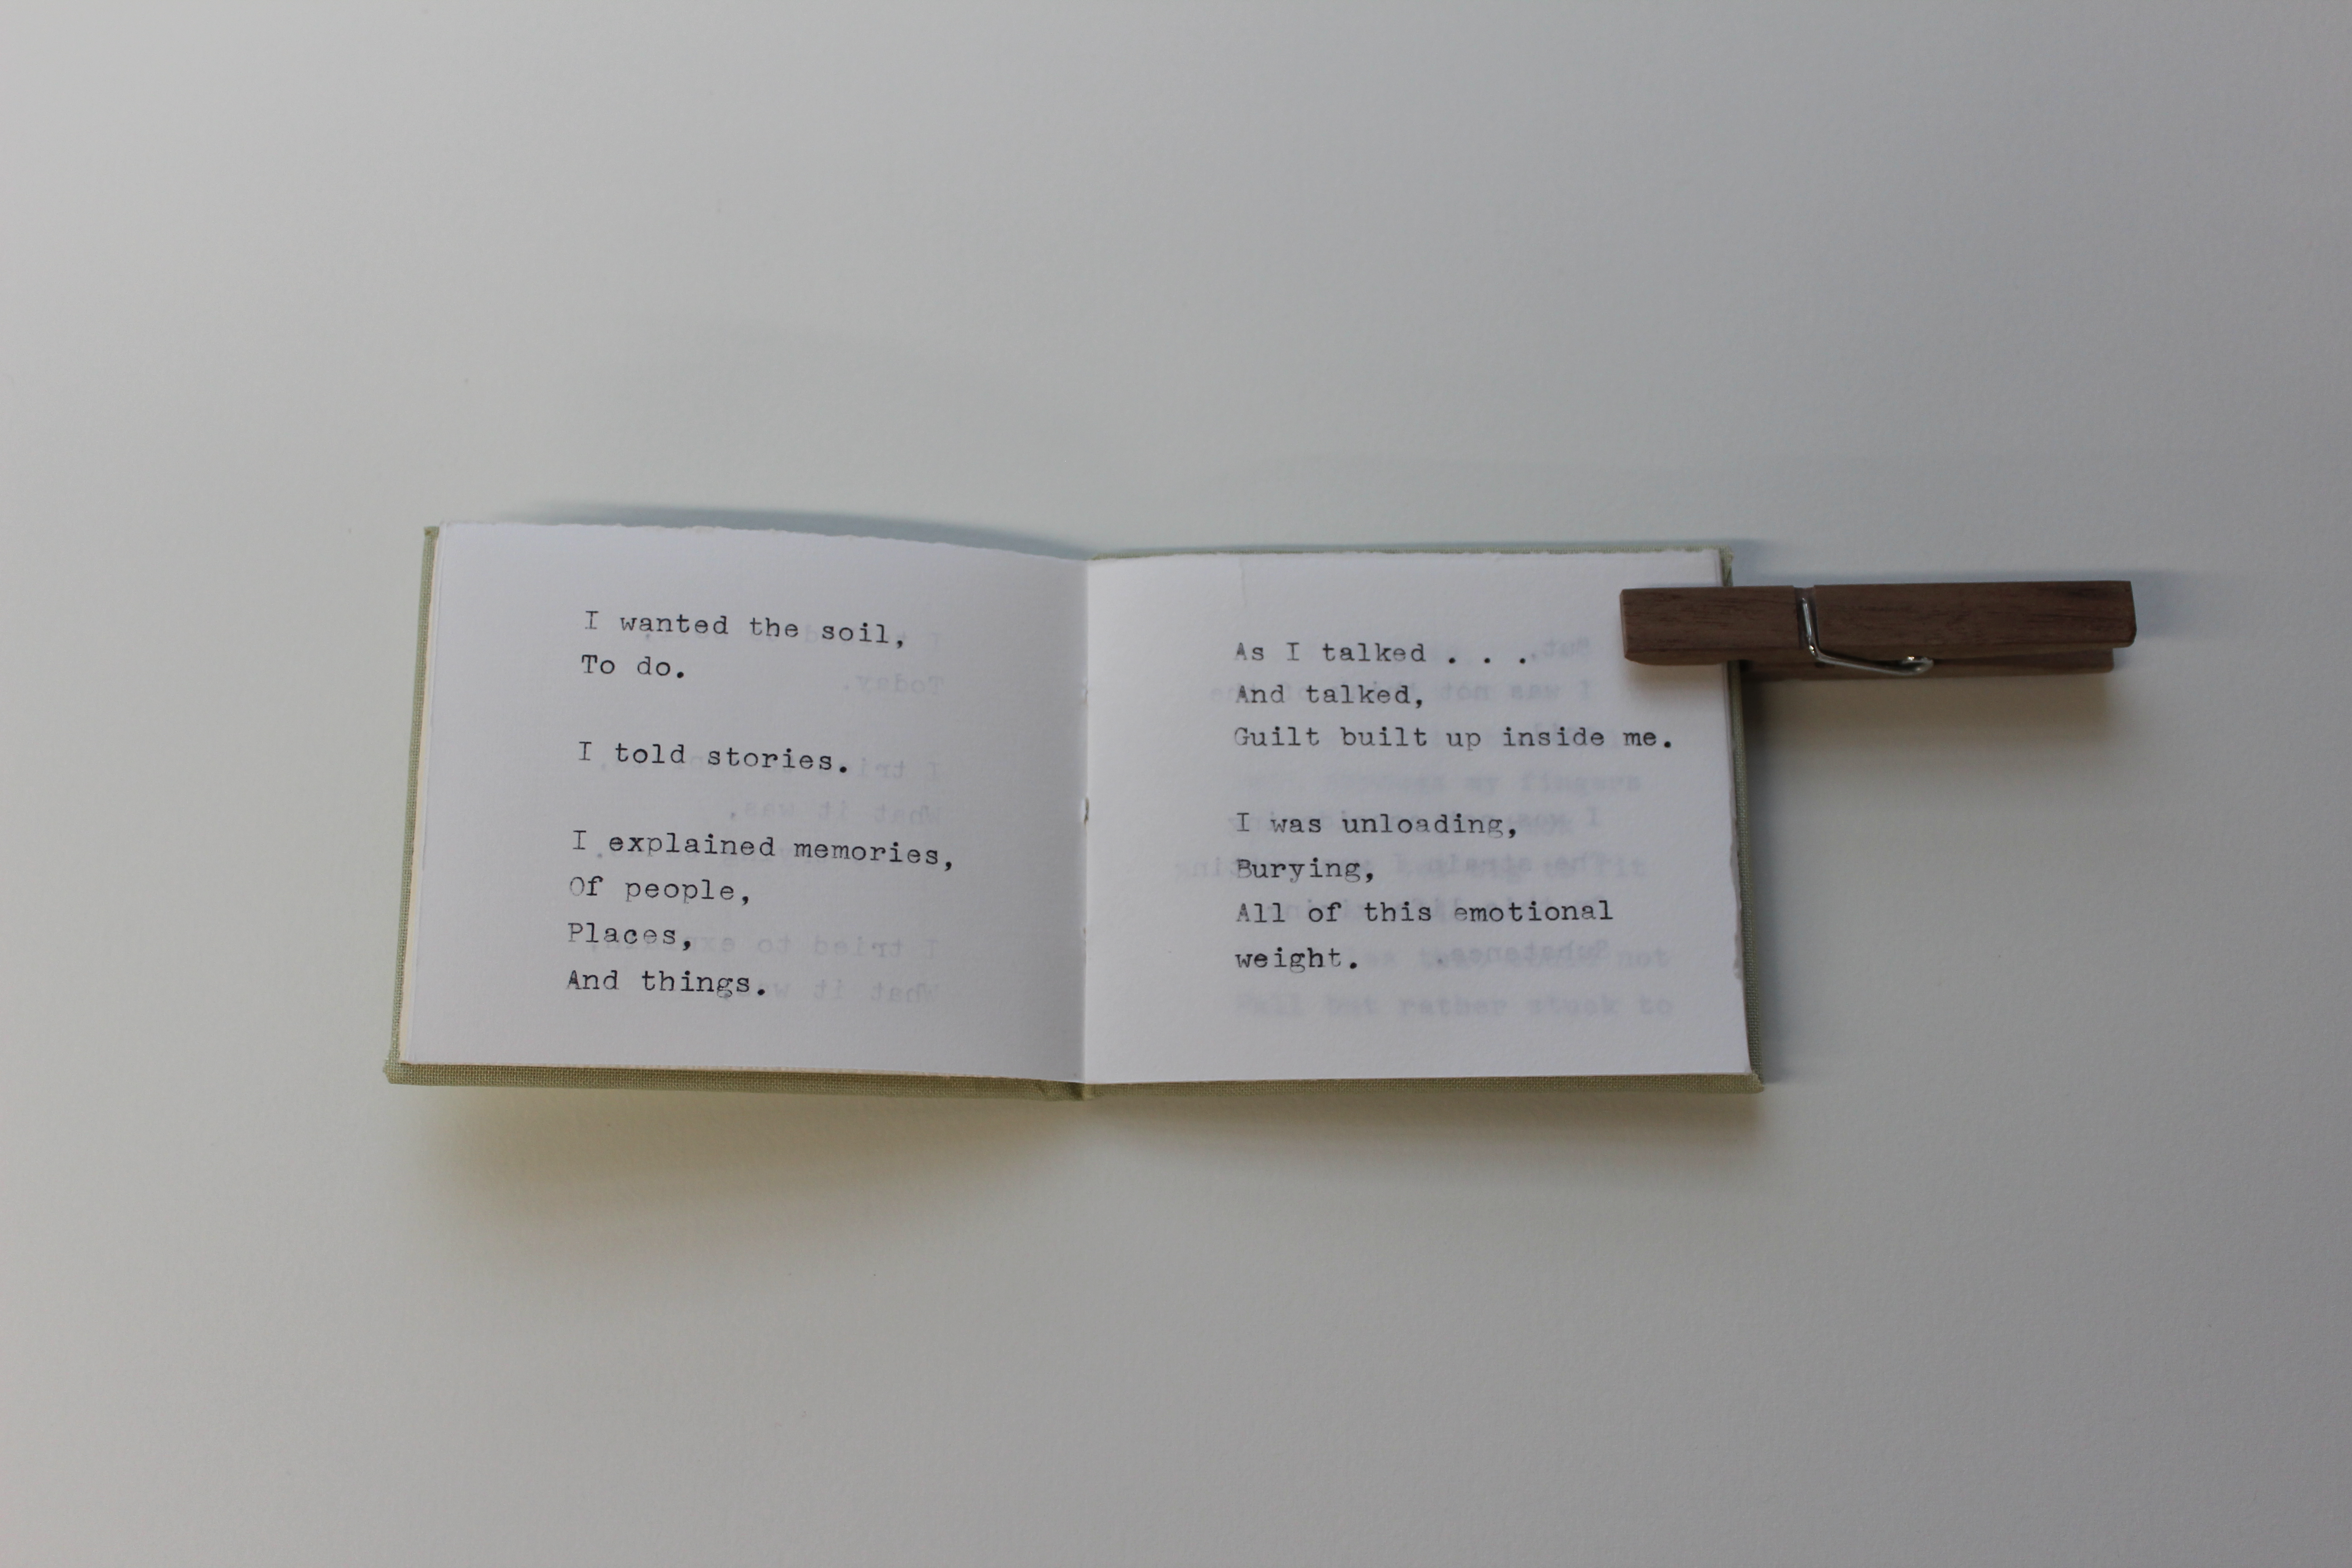 I wanted the soil,
To do.
I told stories.
I explained memories,
Of people,
Places,
And things.
As I talked . . .
And talked,
Guilt built up inside me.
I was unloading,
Burying,
All of this emotional
weight.